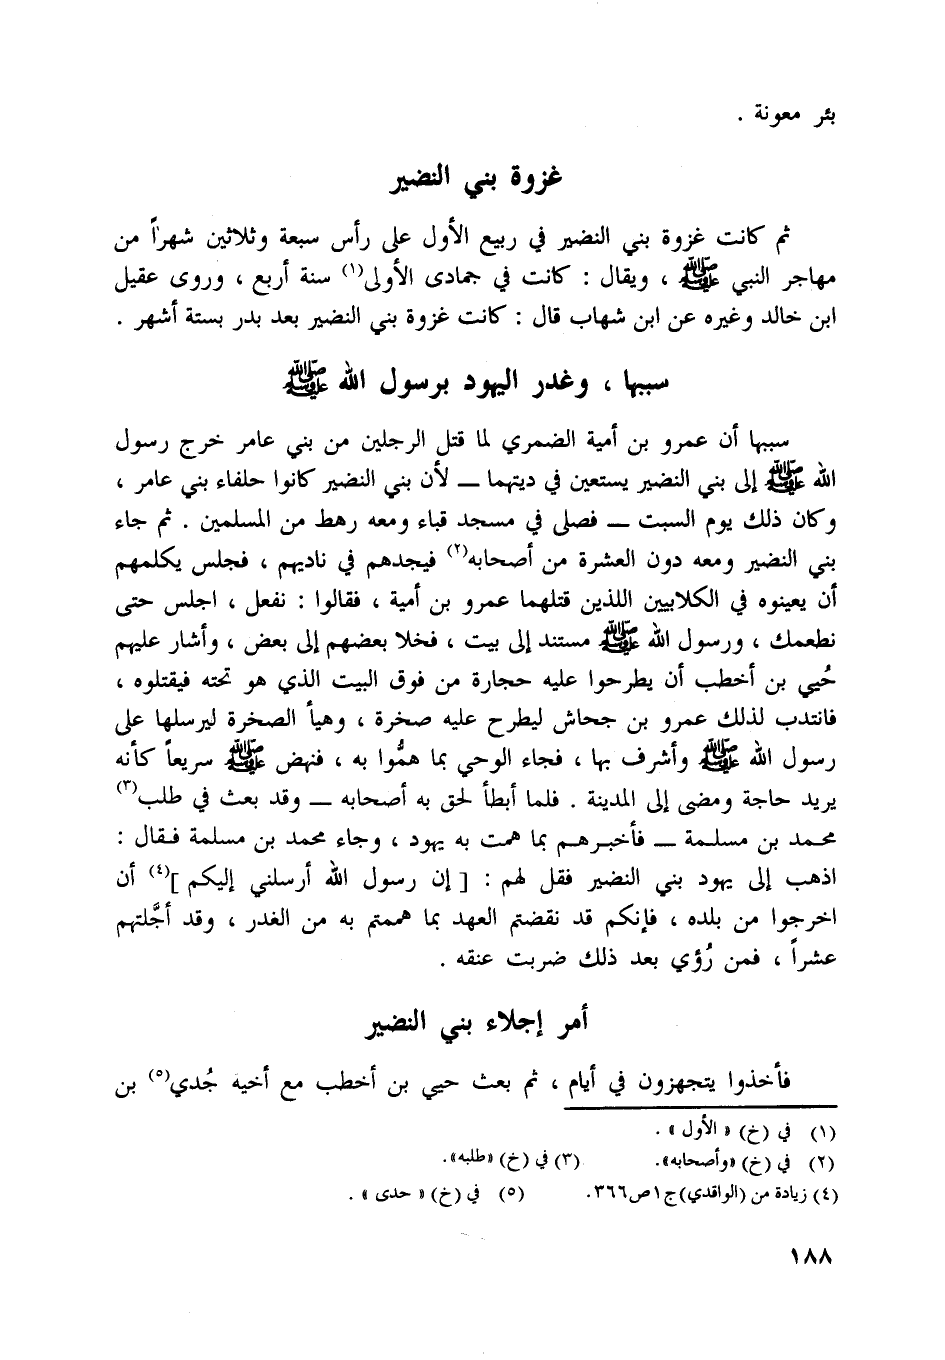 بئر معونة .
غزوة بني النضير
ثم كانت غزوة بني النضير في ربيع الأول على رأس سبعة وثلاثين شهراً من
مهاجر النبي ﷺ ، ويقال : كانت في جمادى الأولى(١) سنة أربع ، وروى عقيل
ابن خالد وغيره عن ابن شهاب قال : كانت غزوة بني النضير بعد بدر بستة أشهر .
سببها ، وغدر اليهود برسول الله ﷺ
سببها أن عمرو بن أمية الضمري لما قتل الرجلين من بني عامر خرج رسول
الله ﷺ إلى بني النضير يستعين في ديتهما — لأن بني النضير كانوا حلفاء بني عامر ،
وكان ذلك يوم السبت — فصلى في مسجد قباء ومعه رهط من المسلمين . ثم جاء
بني النضير ومعه دون العشرة من أصحابه(٢) فيجدهم في ناديهم ، فجلس يكلمهم
أن يعينوه في الكلابيين اللذين قتلهما عمرو بن أمية ، فقالوا : نفعل ، اجلس حتى
نطعمك ، ورسول الله ﷺ مستند إلى بيت ، فخلا بعضهم إلى بعض ، وأشار عليهم
حُيي بن أخطب أن يطرحوا عليه حجارة من فوق البيت الذي هو تحته فيقتلوه ،
فانتدب لذلك عمرو بن جحاش ليطرح عليه صخرة ، وهيأ الصخرة ليرسلها على
رسول الله ﷺ وأشرف بها ، فجاء الوحي بما همُّوا به ، فنهض ﷺ سريعاً كأنه
يريد حاجة ومضى إلى المدينة . فلما أبطأ لحق به أصحابه — وقد بعث في طلب(٣)
محمد بن مسلمة — فأخبرهم بما همت به يهود ، وجاء محمد بن مسلمة فقال :
اذهب إلى يهود بني النضير فقل لهم : [ إن رسول الله أرسلني إليكم ](٤) أن
اخرجوا من بلده ، فإنكم قد نقضتم العهد بما هممتم به من الغدر ، وقد أجَّلتهم
عشراً ، فمن رُؤي بعد ذلك ضربت عنقه .
أمر إجلاء بني النضير
فأخذوا يتجهزون في أيام ، ثم بعث حيي بن أخطب مع أخيه جُدي(٥) بن
(١) في (خ) « الأول » .
(٢) في (خ) «وأصحابه». (٣) في (خ) «طلبه».
(٤) زيادة من (الواقدي) ج ١ ص ٣٦٦. (٥) في (خ) « حدى » .
١٨٨